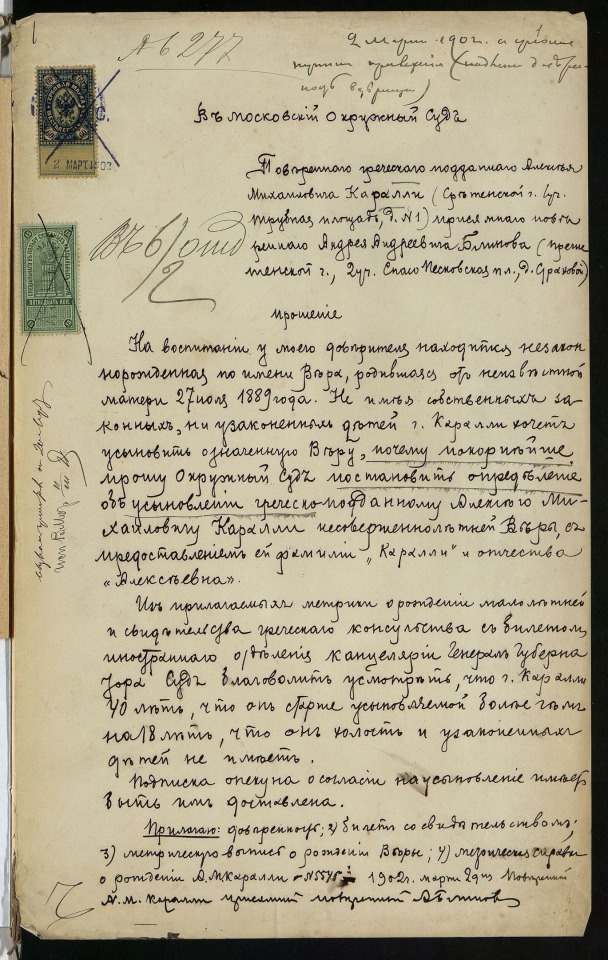 № 6277
2 марта 1902 г.
2 МАРТ 1902
ПЯТНАДЦАТЬ КОП.
Въ Московскій Окружный Судъ
Повѣреннаго греческаго подданнаго Алексѣя
Михаиловича Каралли (Срѣтенской г. 1 уч.
Трубная площадь, д. №1) присяжнаго повѣ
реннаго Андрея Андреевича Блинова (Пречи
стенской г., 2 уч. Спасо Песковская пл., д. Страховой)
Въ 6/отд
2
прошеніе
На воспитаніи у моего довѣрителя находится незакон
норожденная по имени Вѣра, родившаяся отъ неизвѣстной
матери 27 іюля 1889 года. Не имѣя собственныхъ за
конныхъ, ни узаконенныхъ дѣтей г. Каралли хочетъ
усыновить означенную Вѣру, почему покорнѣйше
прошу Окружный Судъ постановить опредѣленіе
объ усыновленіи греческо-подданному Алексѣю Ми
хайловичу Каралли несовершеннолѣтней Вѣры, съ
предоставленіемъ ей фамиліи „Каралли" и отчества
«Алексѣевна».
Изъ прилагаемыхъ метрики о рожденіи малолѣтней
и свидѣтельства греческаго консульства съ билетомъ
иностраннаго отдѣленія канцеляріи Генералъ Губерна
тора Судъ благоволитъ усмотрѣть, что г. Каралли
40 лѣтъ, что онъ старше усыновляемой болѣе чѣмъ
на 18 лѣтъ, что онъ холостъ и узаконенныхъ
дѣтей не имѣетъ.
Подписка опекуна о согласіи на усыновленіе имѣетъ
быть имъ доставлена.
Прилагаю: довѣренность; 2) билетъ со свидѣтельствомъ;
3) метрическую выпись о рожденіи Вѣры; 4) метрическая справка
о рожденіи А.М. Каралли №5545 1902 г. марта 2 дня Повѣренный
А. М. Каралли присяжный повѣренный А Блиновъ